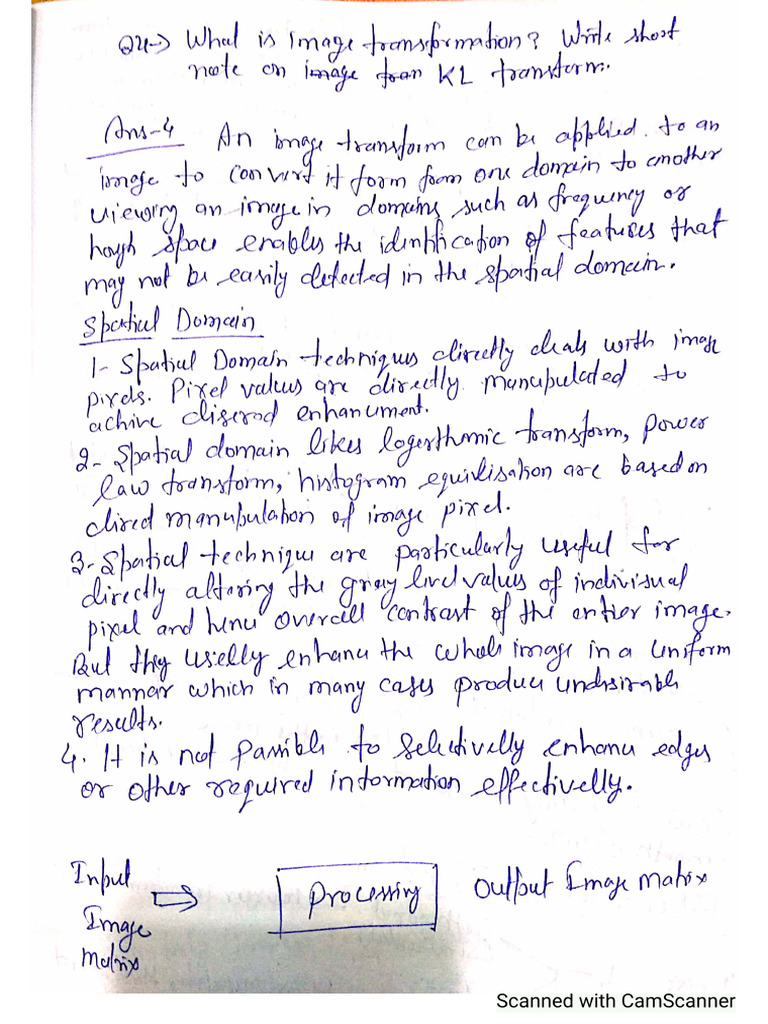 Q4-> What is image transformation? Write short
note on image tran KL transform.
Ans-4 An image transform can be applied to an
image to convert it form from one domain to another
viewing an image in domains such as frequency or
hough space enables the identification of features that
may not be easily detected in the spatial domain.
Spatial Domain
1- Spatial Domain techniques directly deals with image
pixels. Pixel values are directly manupulated to
achive disered enhancument.
2- Spatial domain likes logerthmic transform, power
law transform, histogram equilisation are based on
dired manupulation of image pixel.
3- Spatial technique are particularly useful for
directly altering the gray level values of indivisual
pixel and henu overcell contrast of the entier image.
But they uselly enhanu the whole image in a uniform
mannar which in many cases produu undisirable
results.
4. It is not passible to selectivelly enhanu edges
or other required information effectivelly.
Input
Image
Matrix
Processing
Output Image Matrix
Scanned with CamScanner